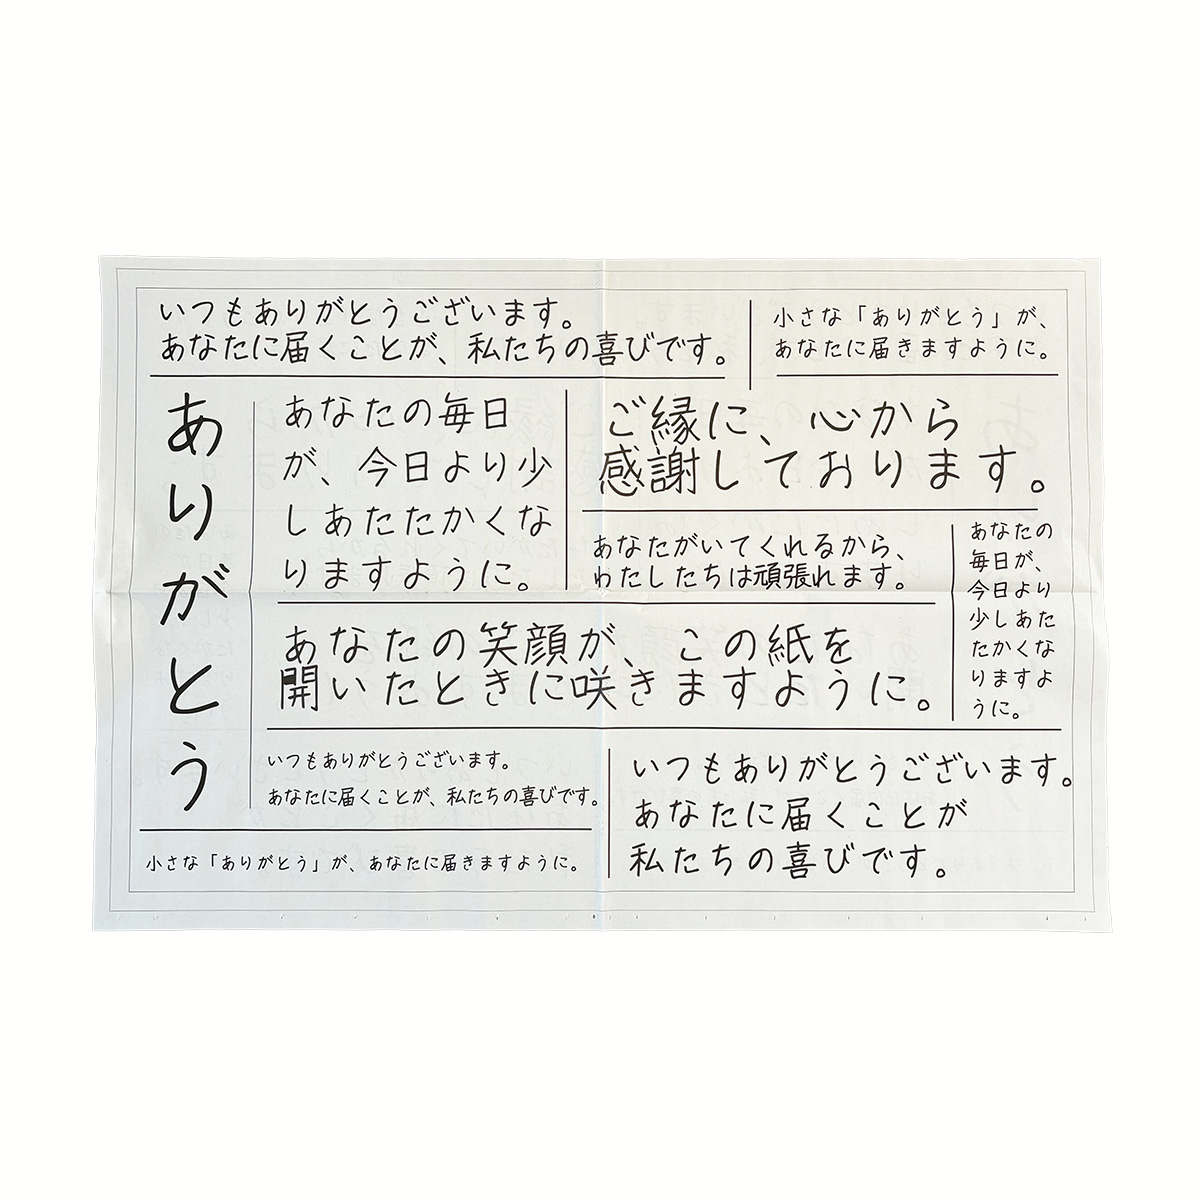 いつもありがとうございます。
あなたに届くことが、私たちの喜びです。
小さな「ありがとう」が、
あなたに届きますように。
ありがとう
あなたの毎日
が、今日より少
しあたたかくな
りますように。
ご縁に、心から
感謝しております。
あなたがいてくれるから、
わたしたちは頑張れます。
あなたの
毎日が、
今日より
少しあた
たかくな
りますよ
うに。
あなたの笑顔が、この紙を
開いたときに咲きますように。
いつもありがとうございます。
あなたに届くことが、私たちの喜びです。
小さな「ありがとう」が、あなたに届きますように。
いつもありがとうございます。
あなたに届くことが
私たちの喜びです。